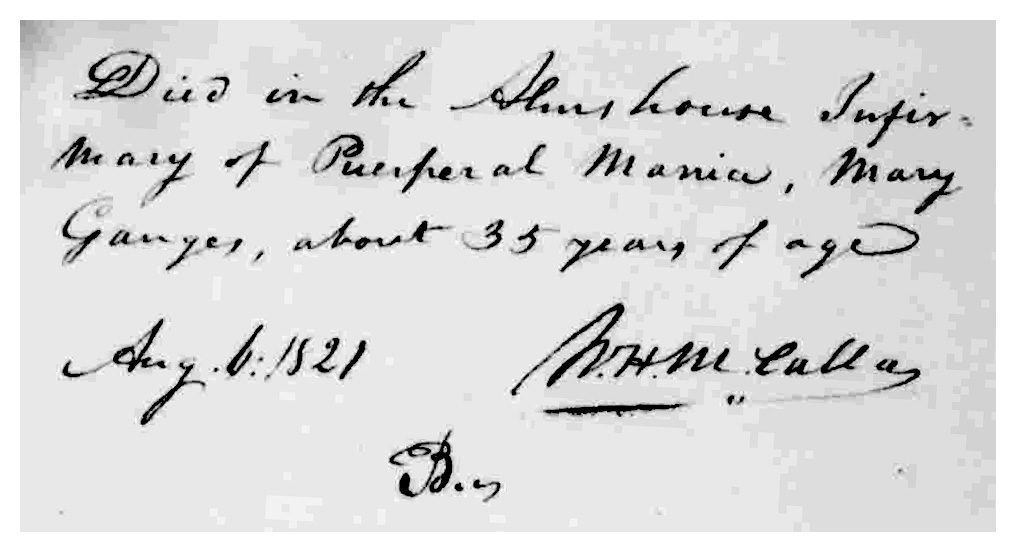 Died in the Almshouse Infir-
mary of Puerperal Mania, Mary
Ganges, about 35 years of age
Aug. 6. 1821 W. H. McCalla